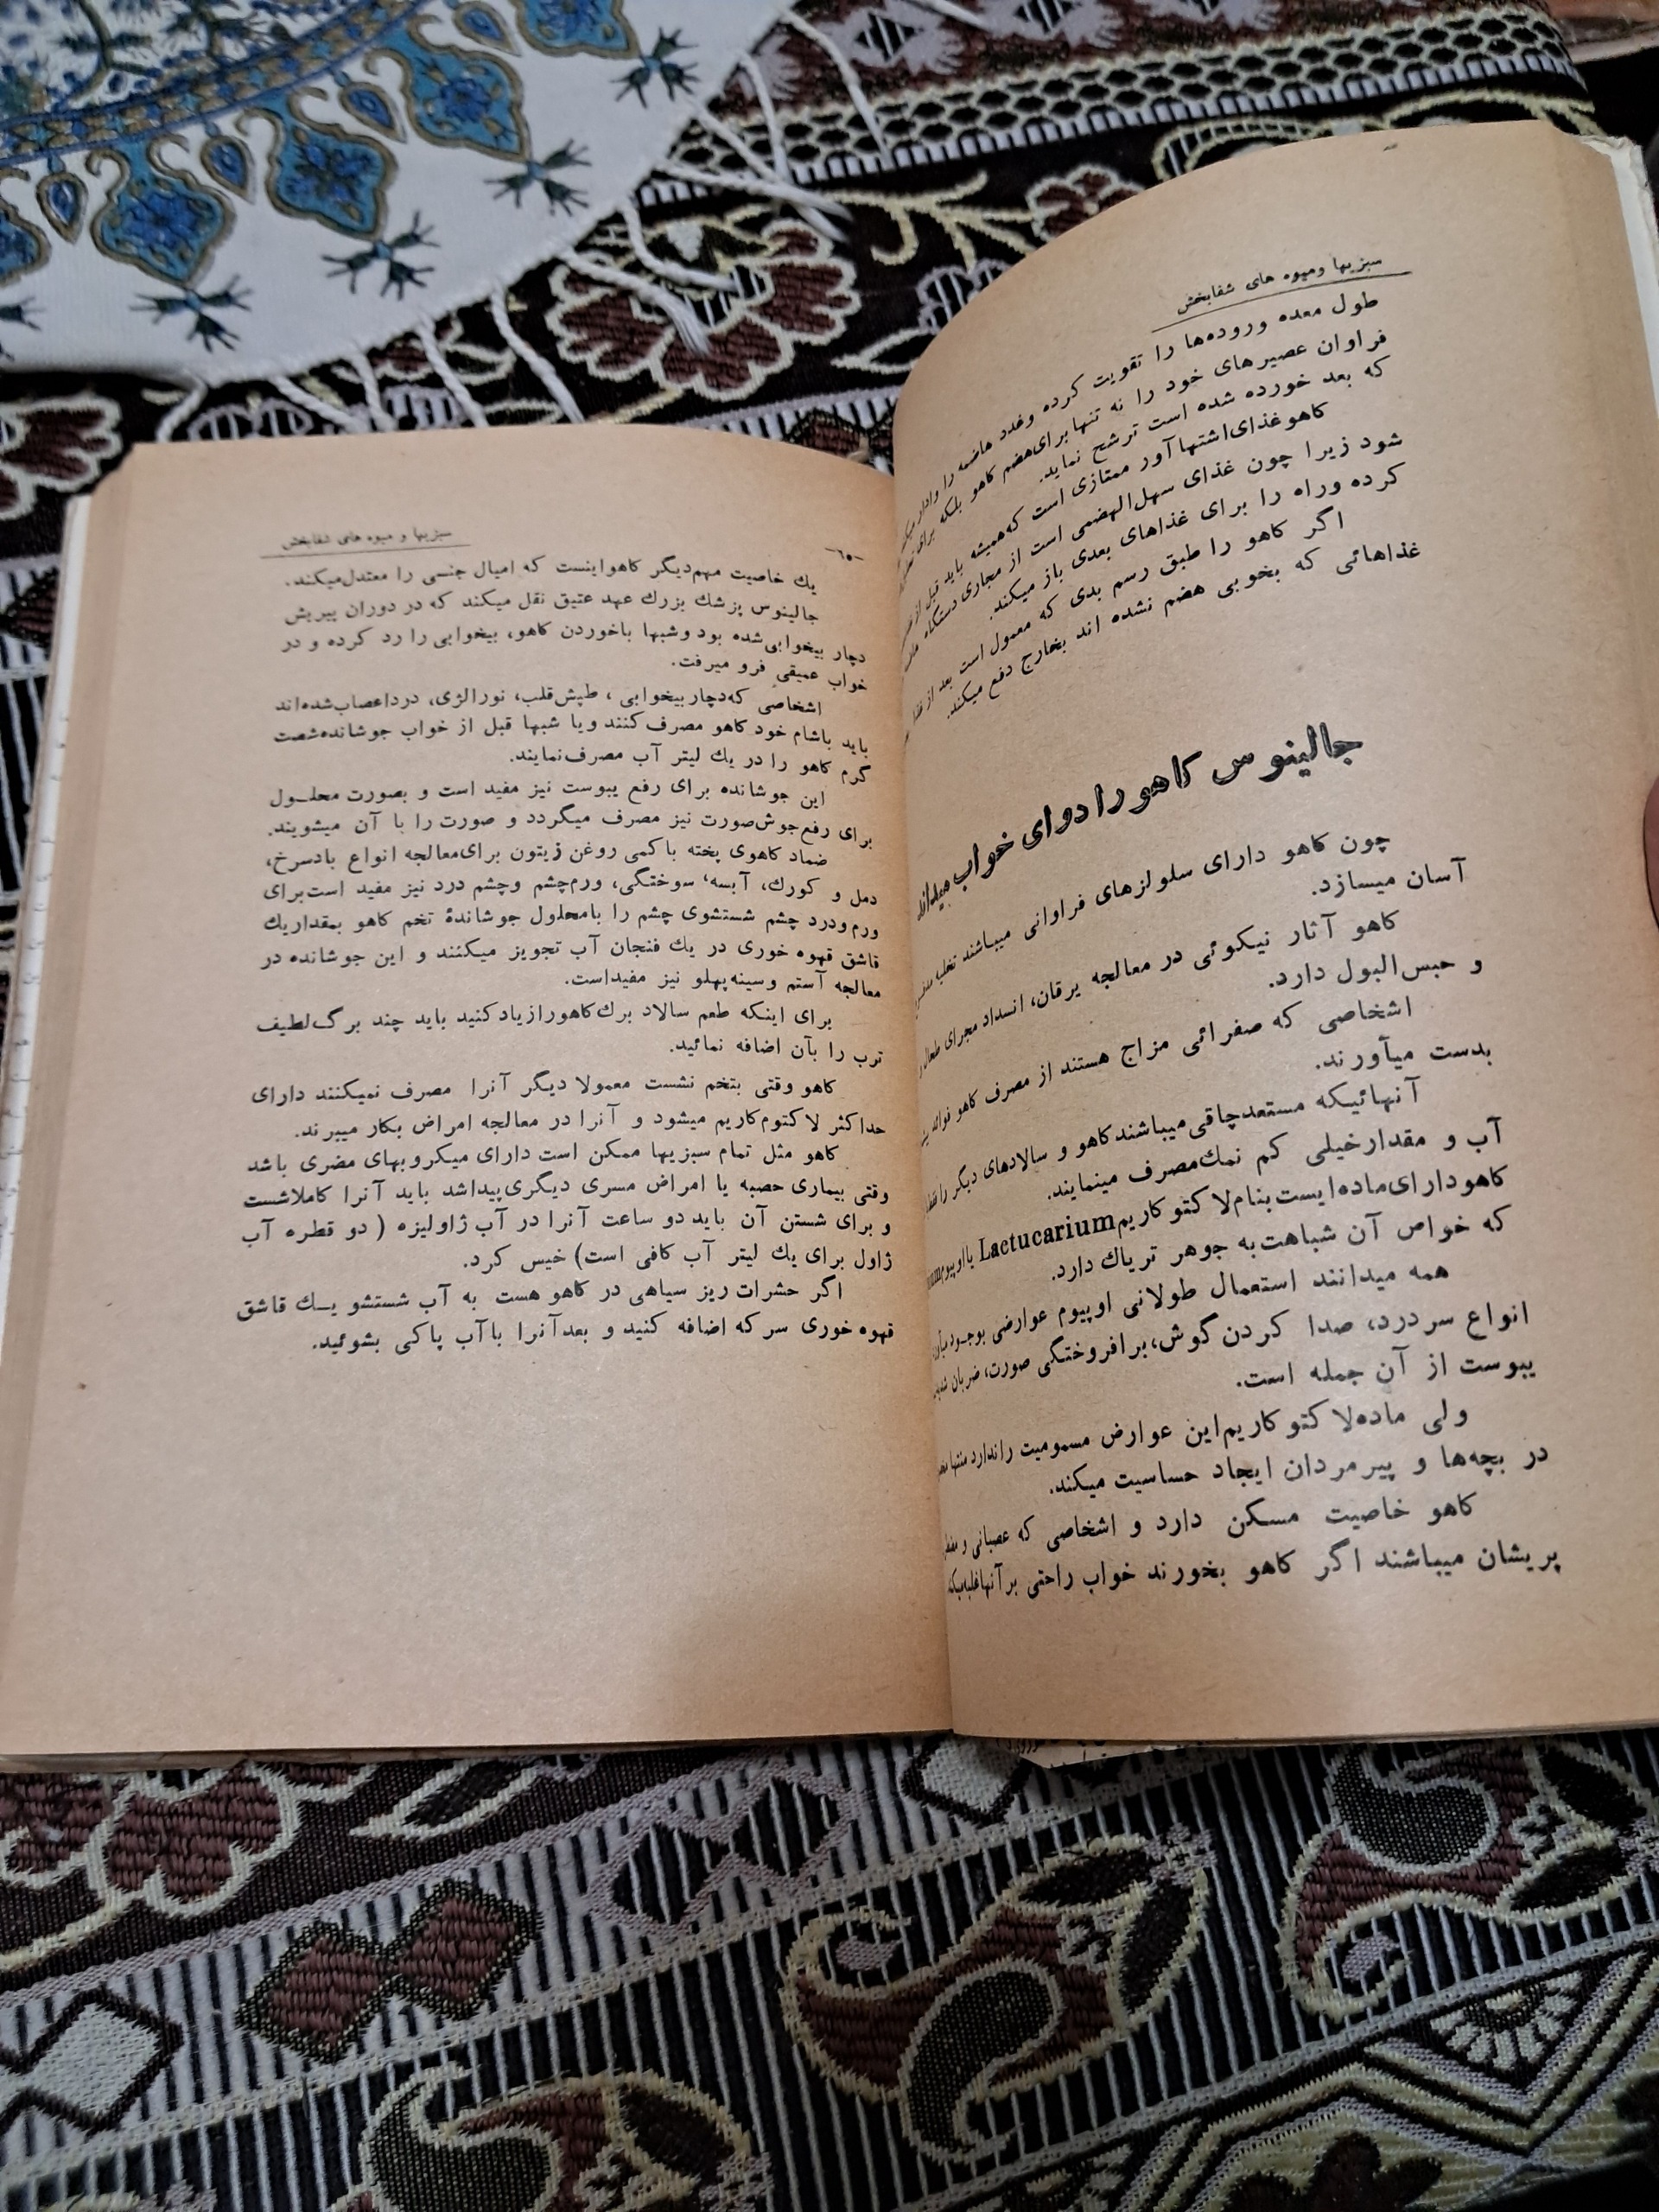 سبزیها و میوه های شفابخش
طول معده وروده‌ها را تقویت کرده وغدد هاضمه را وادار
فراوان عصیرهای خود را نه تنها برای‌هضم کاهو بلکه برای
که بعد خورده شده است ترشح نماید.
کاهوغذای‌اشتهاآور ممتازی است که‌همیشه باید قبل از
شود زیرا چون غذای سهل‌الهضمی است از مجاری دستگاه
کرده وراه را برای غذاهای بعدی باز میکند.
اگر کاهو را طبق رسم بدی که معمول است بعد از غذا
غذاهائی که بخوبی هضم نشده اند بخارج دفع میکند.
جالینوس کاهو را دوای خواب میداند
چون کاهو دارای سلولزهای فراوانی میباشند تخلیه
آسان میسازد.
کاهو آثار نیکوئی در معالجه یرقان، انسداد مجرای طحال
و حبس‌البول دارد.
اشخاصی که صفرائی مزاج هستند از مصرف کاهو فوائد
بدست میآورند.
آنهائیکه مستعدچاقی‌میباشندکاهو و سالادهای دیگر را
آب و مقدارخیلی کم نمك‌مصرف مینمایند.
کاهودارای‌ماده‌ایست‌بنام‌لاکتوکاریمLactucarium یااوپیوم
که خواص آن شباهت‌به جوهر تریاك دارد.
همه میدانند استعمال طولانی اوپیوم عوارضی بوجود
انواع سردرد، صدا کردن گوش،برافروختگی صورت، ضربان
یبوست از آن جمله است.
ولی ماده‌لاکتوکاریم‌این عوارض مسمومیت راندارد منتها
در بچه‌ها و پیرمردان ایجاد حساسیت میکند.
کاهو خاصیت مسکن دارد و اشخاصی که عصبانی و
پریشان میباشند اگر کاهو بخورند خواب راحتی برآنهاغلبه‌میکند
سبزیها و میوه های شفابخش
-٦٥-
يك خاصیت مهم‌دیگر کاهواینست که امیال جنسی را معتدل‌میکند.
جالینوس پزشك بزرك عهد عتیق نقل میکند که در دوران پیریش
دچار بیخوابی‌شده بود وشبها باخوردن کاهو، بیخوابی را رد کرده و در
خواب عمیقی فرو میرفت.
اشخاصی که‌دچاربیخوابی ، طپش‌قلب، نورالژی، درداعصاب‌شده‌اند
باید باشام خود کاهو مصرف‌کنند ویا شبها قبل از خواب جوشانده‌شصت
گرم کاهو را در يك لیتر آب مصرف‌نمایند.
این جوشانده برای رفع یبوست نیز مفید است و بصورت محلـول
برای رفع‌جوش‌صورت نیز مصرف میگردد و صورت را با آن میشویند.
ضماد کاهوی پخته باکمی روغن زیتون برای‌معالجه انواع بادسرخ،
دمل و کورك، آبسه، سوختگی، ورم‌چشم وچشم درد نیز مفید است‌برای
ورم‌ودرد چشم شستشوی چشم را بامحلول جوشاندهٔ تخم کاهو بمقداریك
قاشق قهوه خوری در يك فنجان آب تجویز میکنند و این جوشانده در
معالجه آستم وسینه‌پهلو نیز مفیداست.
برای اینکه طعم سالاد برك‌کاهورازیادکنید باید چند برگ‌لطیف
ترب را بآن اضافه نمائید.
کاهو وقتی بتخم نشست معمولا دیگر آنرا مصرف نمیکنند دارای
حداکثر لاکتوم‌کاریم میشود و آنرا در معالجه امراض بکار میبرند.
کاهو مثل تمام سبزیها ممکن است دارای میکروبهای مضری باشد
وقتی بیماری حصبه یا امراض مسری دیگری‌پیداشد باید آنرا کاملاشست
و برای شستن آن باید دو ساعت آنرا در آب ژاولیزه ( دو قطره آب
ژاول برای يك لیتر آب کافی است) خیس کرد.
اگر حشرات ریز سیاهی در کاهو هست به آب شستشو یـك قاشق
قهوه خوری سرکه اضافه کنید و بعدآنرا باآب پاکی بشوئید.